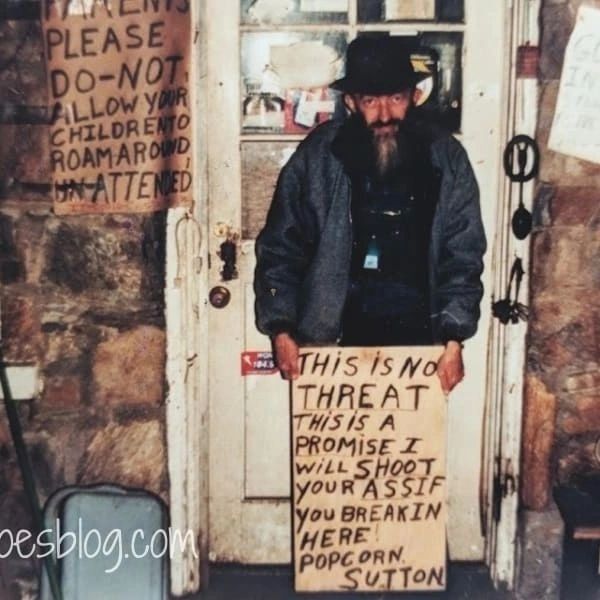 PARENTS
PLEASE
DO-NOT
ALLOW YOUR
CHILDREN TO
ROAM AROUND
UN-ATTENDED
THIS IS NO
THREAT
THIS IS A
PROMISE I
WILL SHOOT
YOUR ASS IF
YOU BREAK IN
HERE
POPCORN.
SUTTON
oesblog.com